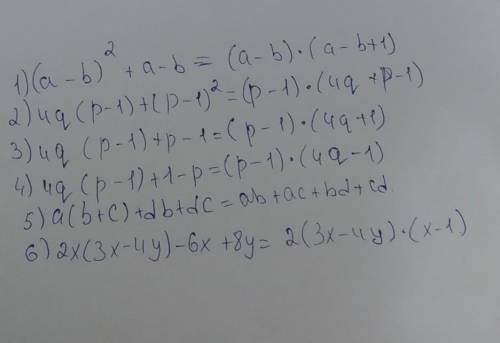 1) (a-b)² + a-b = (a-b)·(a-b+1)
2) 4q (p-1)+(p-1)² = (p-1)·(4q+p-1)
3) 4q (p-1)+p-1 = (p-1)·(4q+1)
4) 4q (p-1)+1-p = (p-1)·(4q-1)
5) a(b+c)+db+dc = ab+ac+bd+cd
6) 2x(3x-4y)-6x+8y = 2(3x-4y)·(x-1)